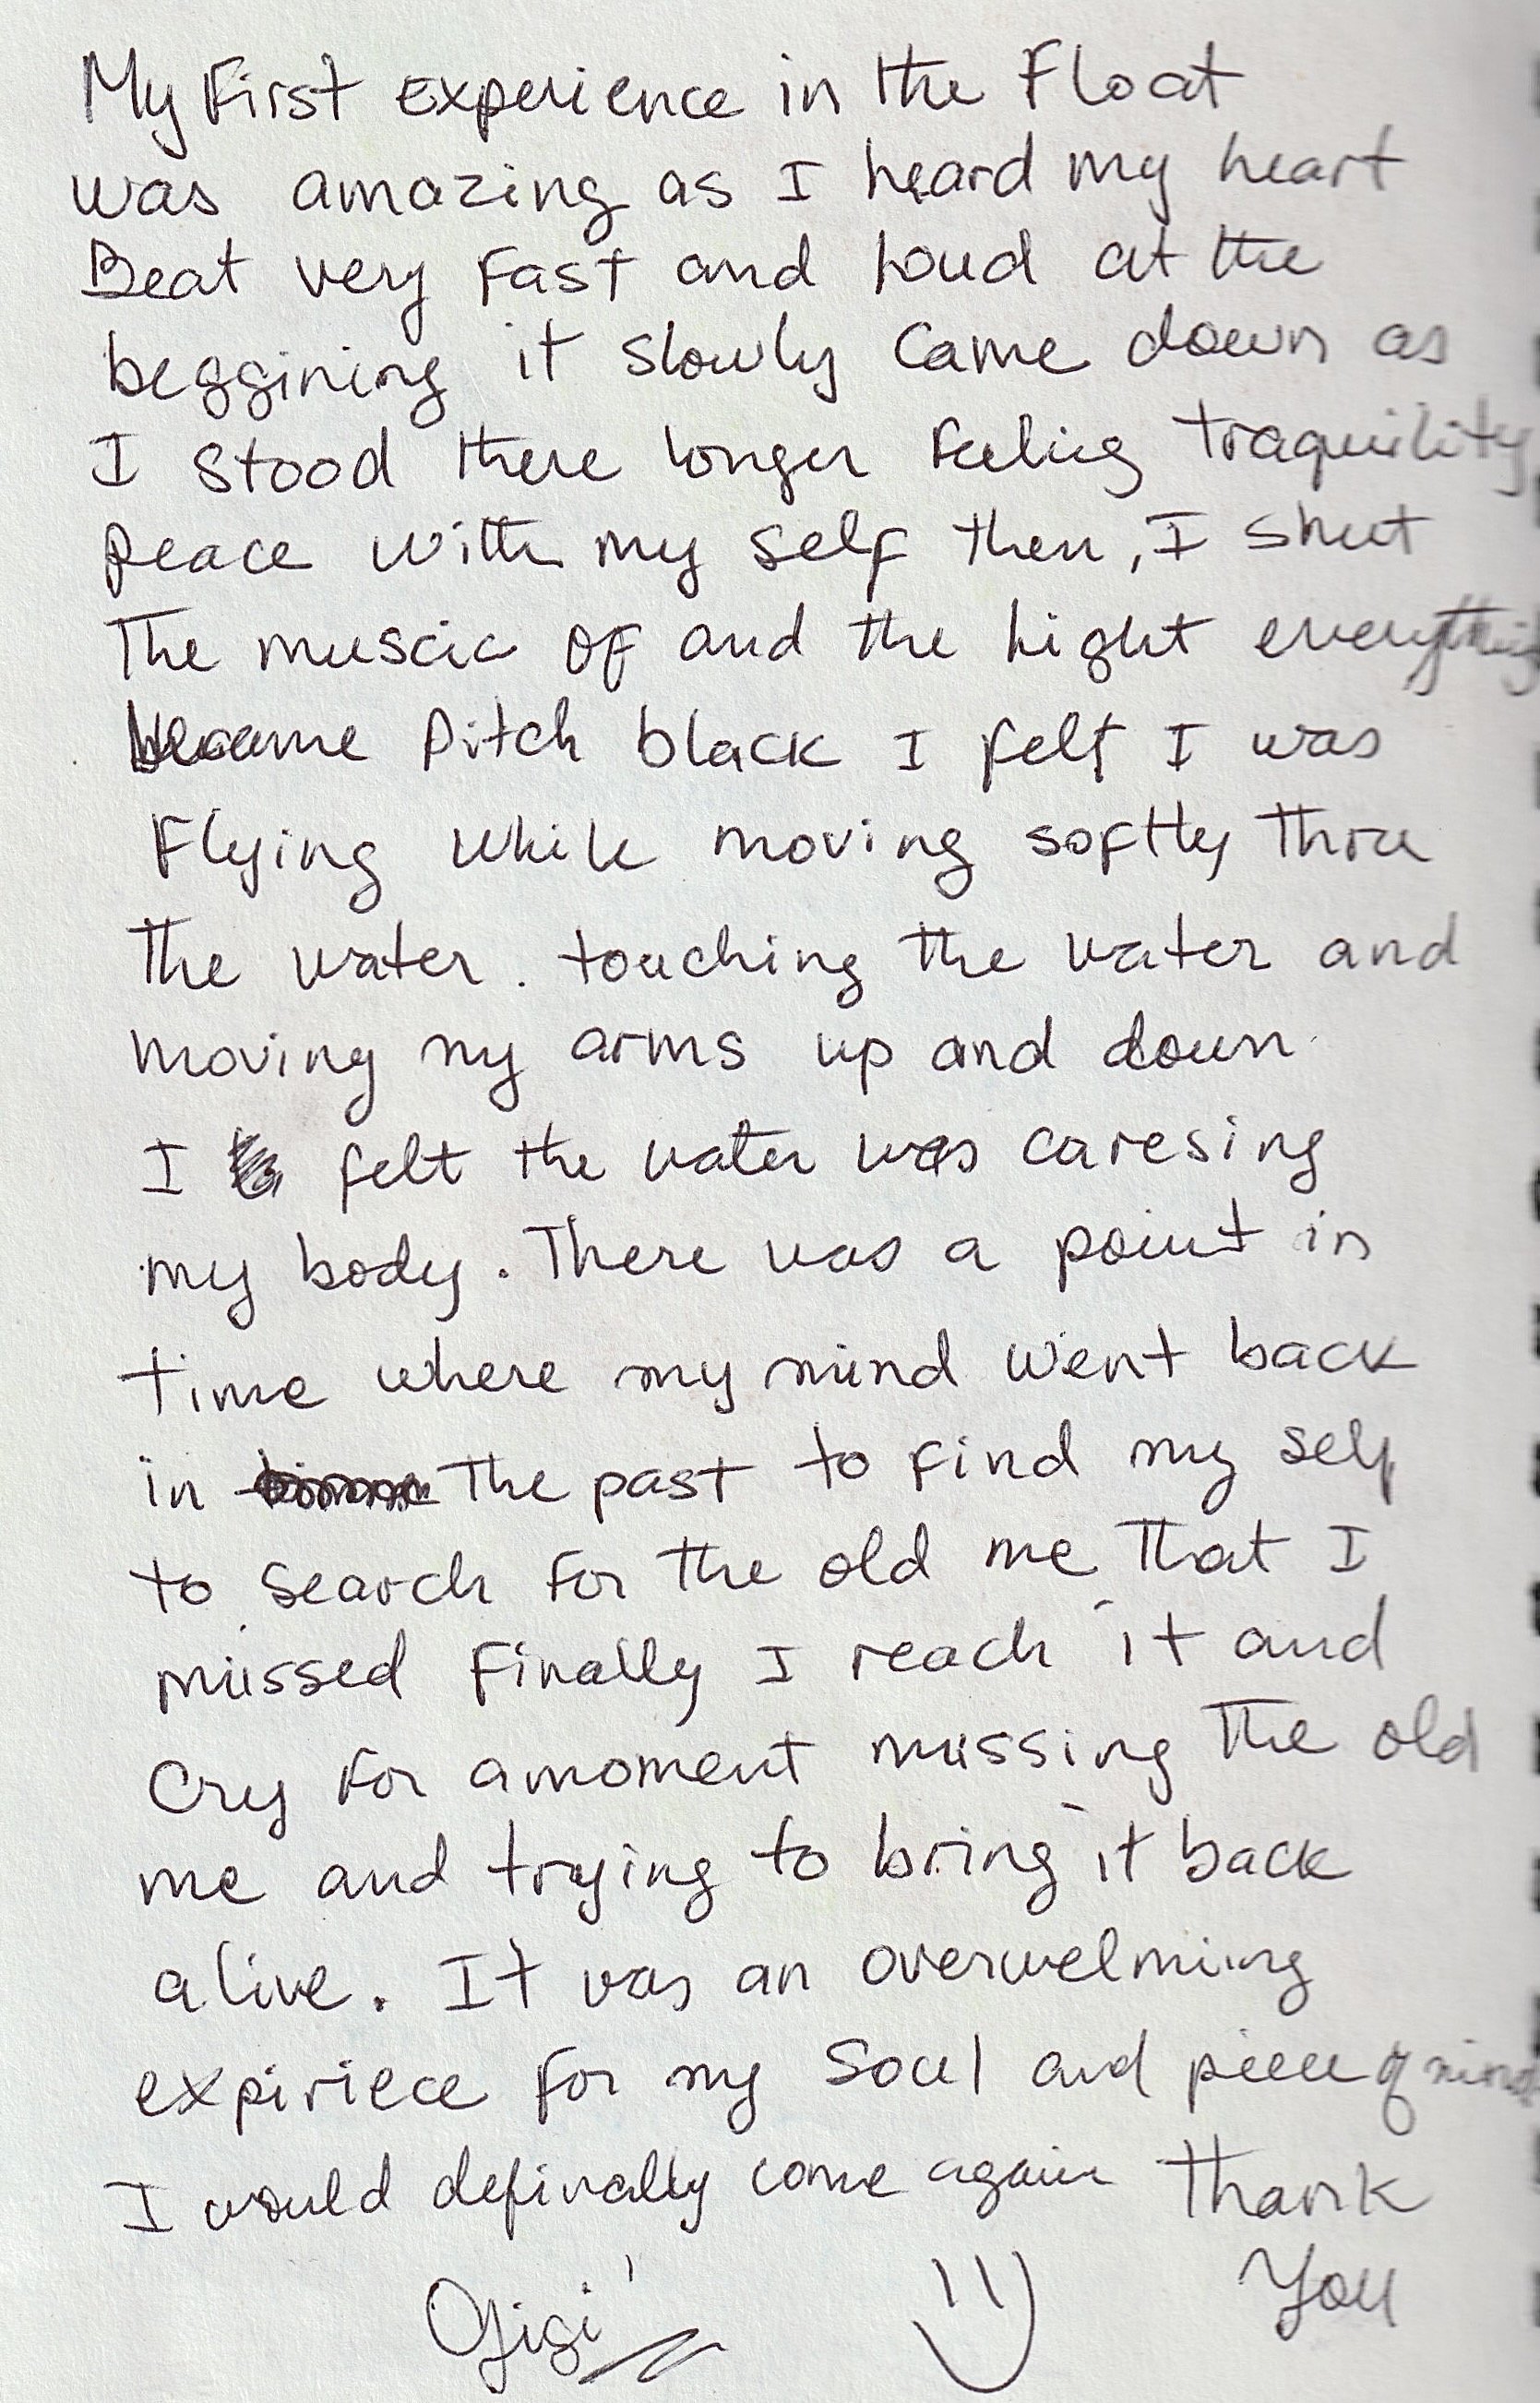 My First experience in the Float
was amazing as I heard my heart
Beat very Fast and Loud at the
beggining it slowly came down as
I stood there longer Feeling traquility
peace with my self then, I shut
The muscic OF and the Light everything
became Pitch black I felt I was
Flying while moving softly thru
The water. touching the water and
moving my arms up and down.
I felt the water was caresing
my body. There was a point in
time where my mind went back
in the past to find my self
to search for the old me that I
missed Finally I reach it and
Cry for a moment missing The old
me and trying to bring it back
alive. It was an overwelming
expiriece for my soul and piece of mind
I would definally come again Thank
You
Gigi